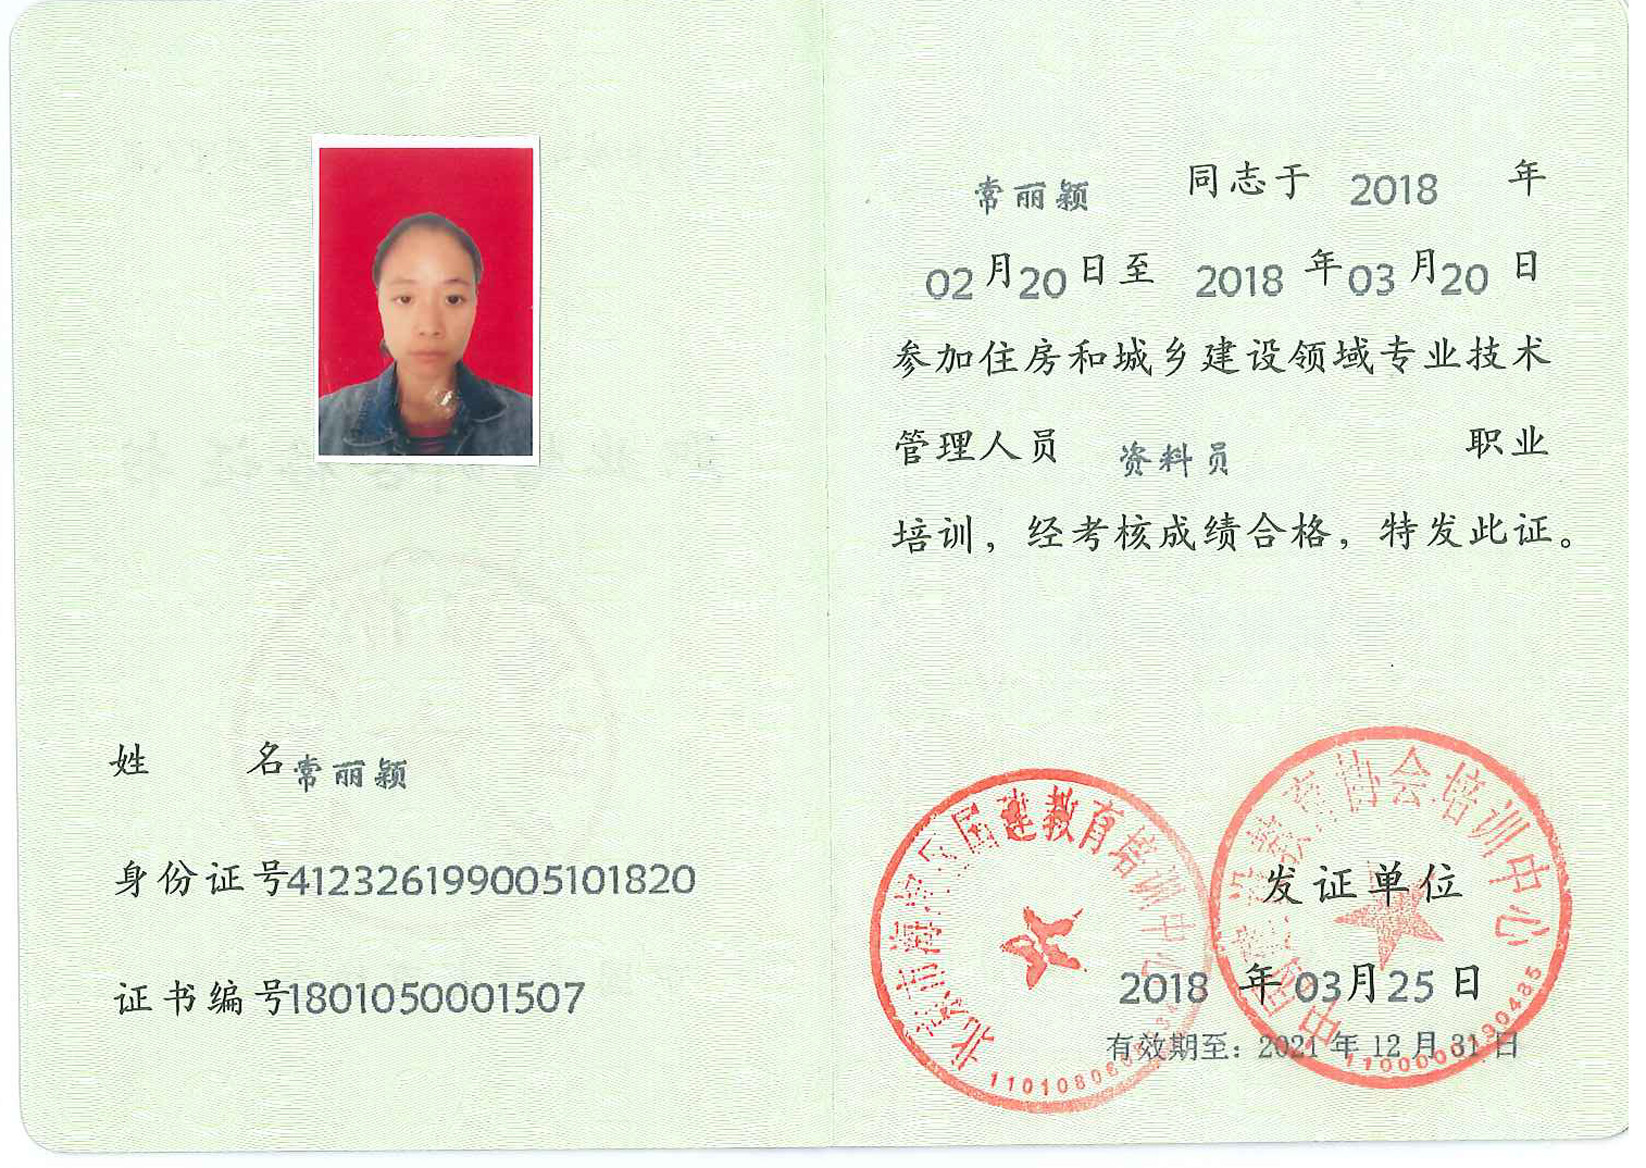 姓 名 常丽颖
身份证号412326199005101820
证书编号1801050001507
常丽颖 同志于 2018 年
02月20日至 2018年03月20日
参加住房和城乡建设领域专业技术
管理人员 资料员 职业
培训，经考核成绩合格，特发此证。
建教育培训中心
教育协会培训中心
发证单位
2018 年 03月25日
有效期至：2021年12月31日